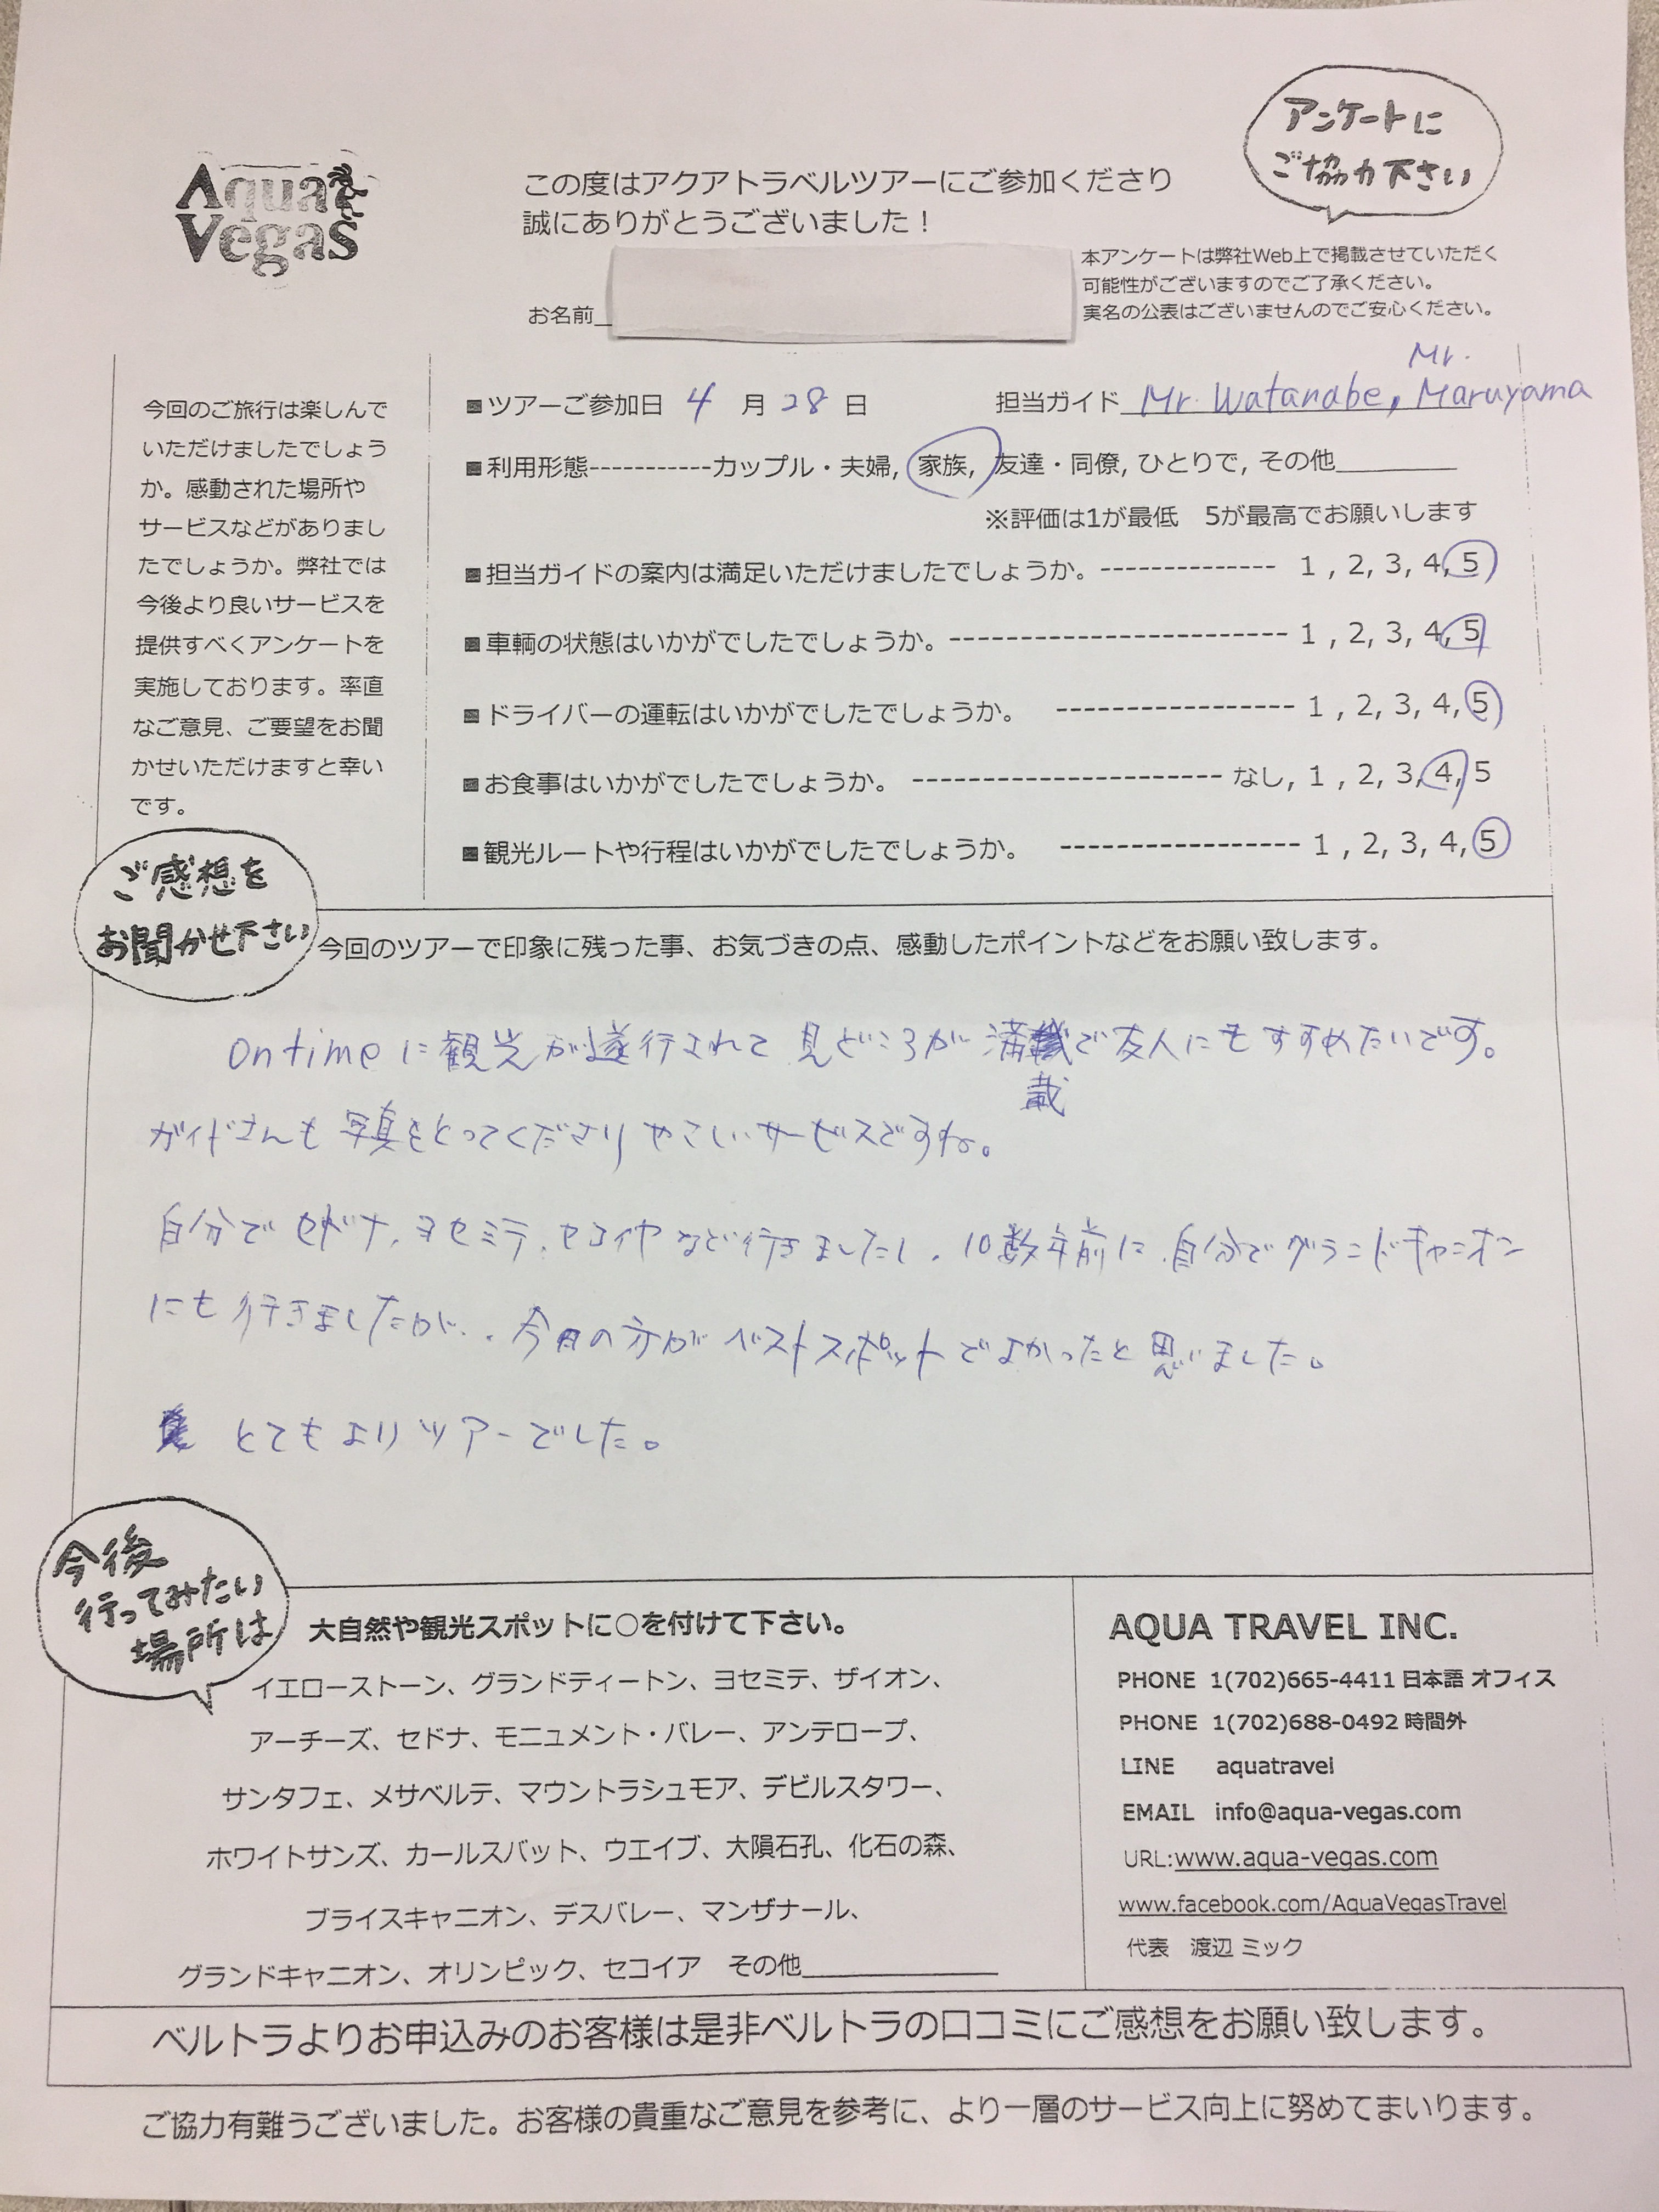 アンケートに
ご協力下さい
Aqua
Vegas
この度はアクアトラベルツアーにご参加くださり
誠にありがとうございました！
本アンケートは弊社Web上で掲載させていただく
可能性がございますのでご了承ください。
実名の公表はございませんのでご安心ください。
お名前
今回のご旅行は楽しんで
いただけましたでしょう
か。感動された場所や
サービスなどがありまし
たでしょうか。弊社では
今後より良いサービスを
提供すべくアンケートを
実施しております。率直
なご意見、ご要望をお聞
かせいただけますと幸い
です。
■ツアーご参加日 4 月 28 日 担当ガイド Mr. Watanabe, Mr. Maruyama
■利用形態-----------カップル・夫婦, 家族, 友達・同僚, ひとりで, その他
※評価は1が最低 5が最高でお願いします
■担当ガイドの案内は満足いただけましたでしょうか。-------------- 1 , 2, 3, 4, 5
■車輌の状態はいかがでしたでしょうか。--------------------------- 1 , 2, 3, 4, 5
■ドライバーの運転はいかがでしたでしょうか。 ----------------- 1 , 2, 3, 4, 5
■お食事はいかがでしたでしょうか。 ---------------------- なし, 1 , 2, 3, 4, 5
■観光ルートや行程はいかがでしたでしょうか。 ----------------- 1 , 2, 3, 4, 5
ご感想を
お聞かせ下さい
今回のツアーで印象に残った事、お気づきの点、感動したポイントなどをお願い致します。
on timeに観光が遂行されて見どころが満載で友人にもすすめたいです。
ガイドさんも写真をとってくださりやさしいサービスですね。
自分でセドナ、ヨセミテ、セコイヤなど行きましたし、10数年前に自分でグランドキャニオン
にも行きましたが、今日の方がベストスポットでよかったと思いました。
とてもよいツアーでした。
今後
行ってみたい
場所は
大自然や観光スポットに○を付けて下さい。
イエローストーン、グランドティートン、ヨセミテ、ザイオン、
アーチーズ、セドナ、モニュメント・バレー、アンテロープ、
サンタフェ、メサベルテ、マウントラシュモア、デビルスタワー、
ホワイトサンズ、カールスバット、ウエイブ、大隕石孔、化石の森、
ブライスキャニオン、デスバレー、マンザナール、
グランドキャニオン、オリンピック、セコイア その他
AQUA TRAVEL INC.
PHONE 1(702)665-4411 日本語 オフィス
PHONE 1(702)688-0492 時間外
LINE aquatravel
EMAIL info@aqua-vegas.com
URL:www.aqua-vegas.com
www.facebook.com/AquaVegasTravel
代表 渡辺 ミック
ベルトラよりお申込みのお客様は是非ベルトラの口コミにご感想をお願い致します。
ご協力有難うございました。お客様の貴重なご意見を参考に、より一層のサービス向上に努めてまいります。